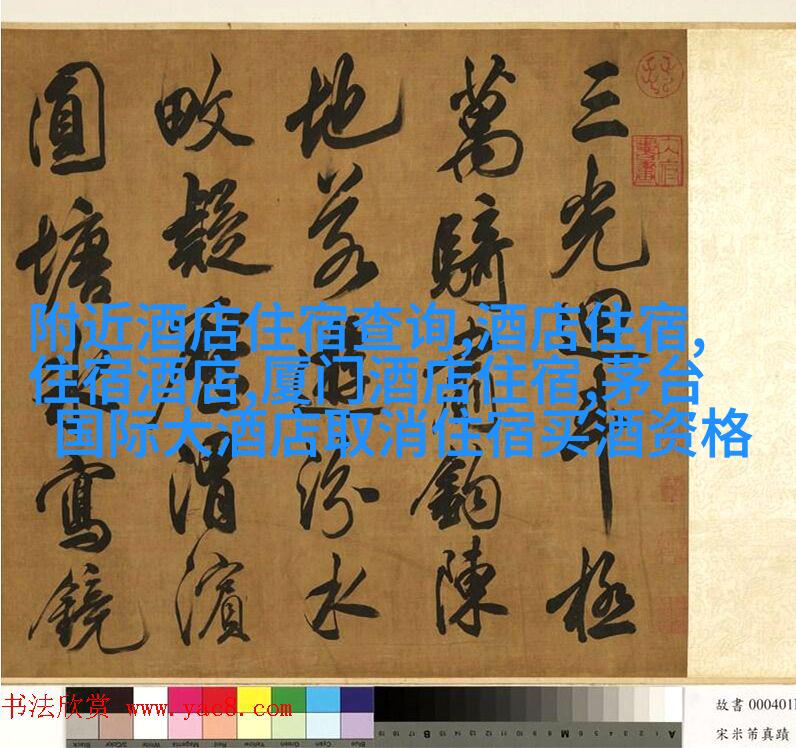 三光迴斗極
萬騎肅鉤陳
地若遊汾水
畋疑歷渭濱
圓塘冰寫鏡
附近酒店住宿查询,酒店住宿,
住宿酒店,厦门酒店住宿,茅台
国际大酒店取消住宿买酒资格
书法欣赏 www.yac8.com
故書 000401
宋米芾真蹟